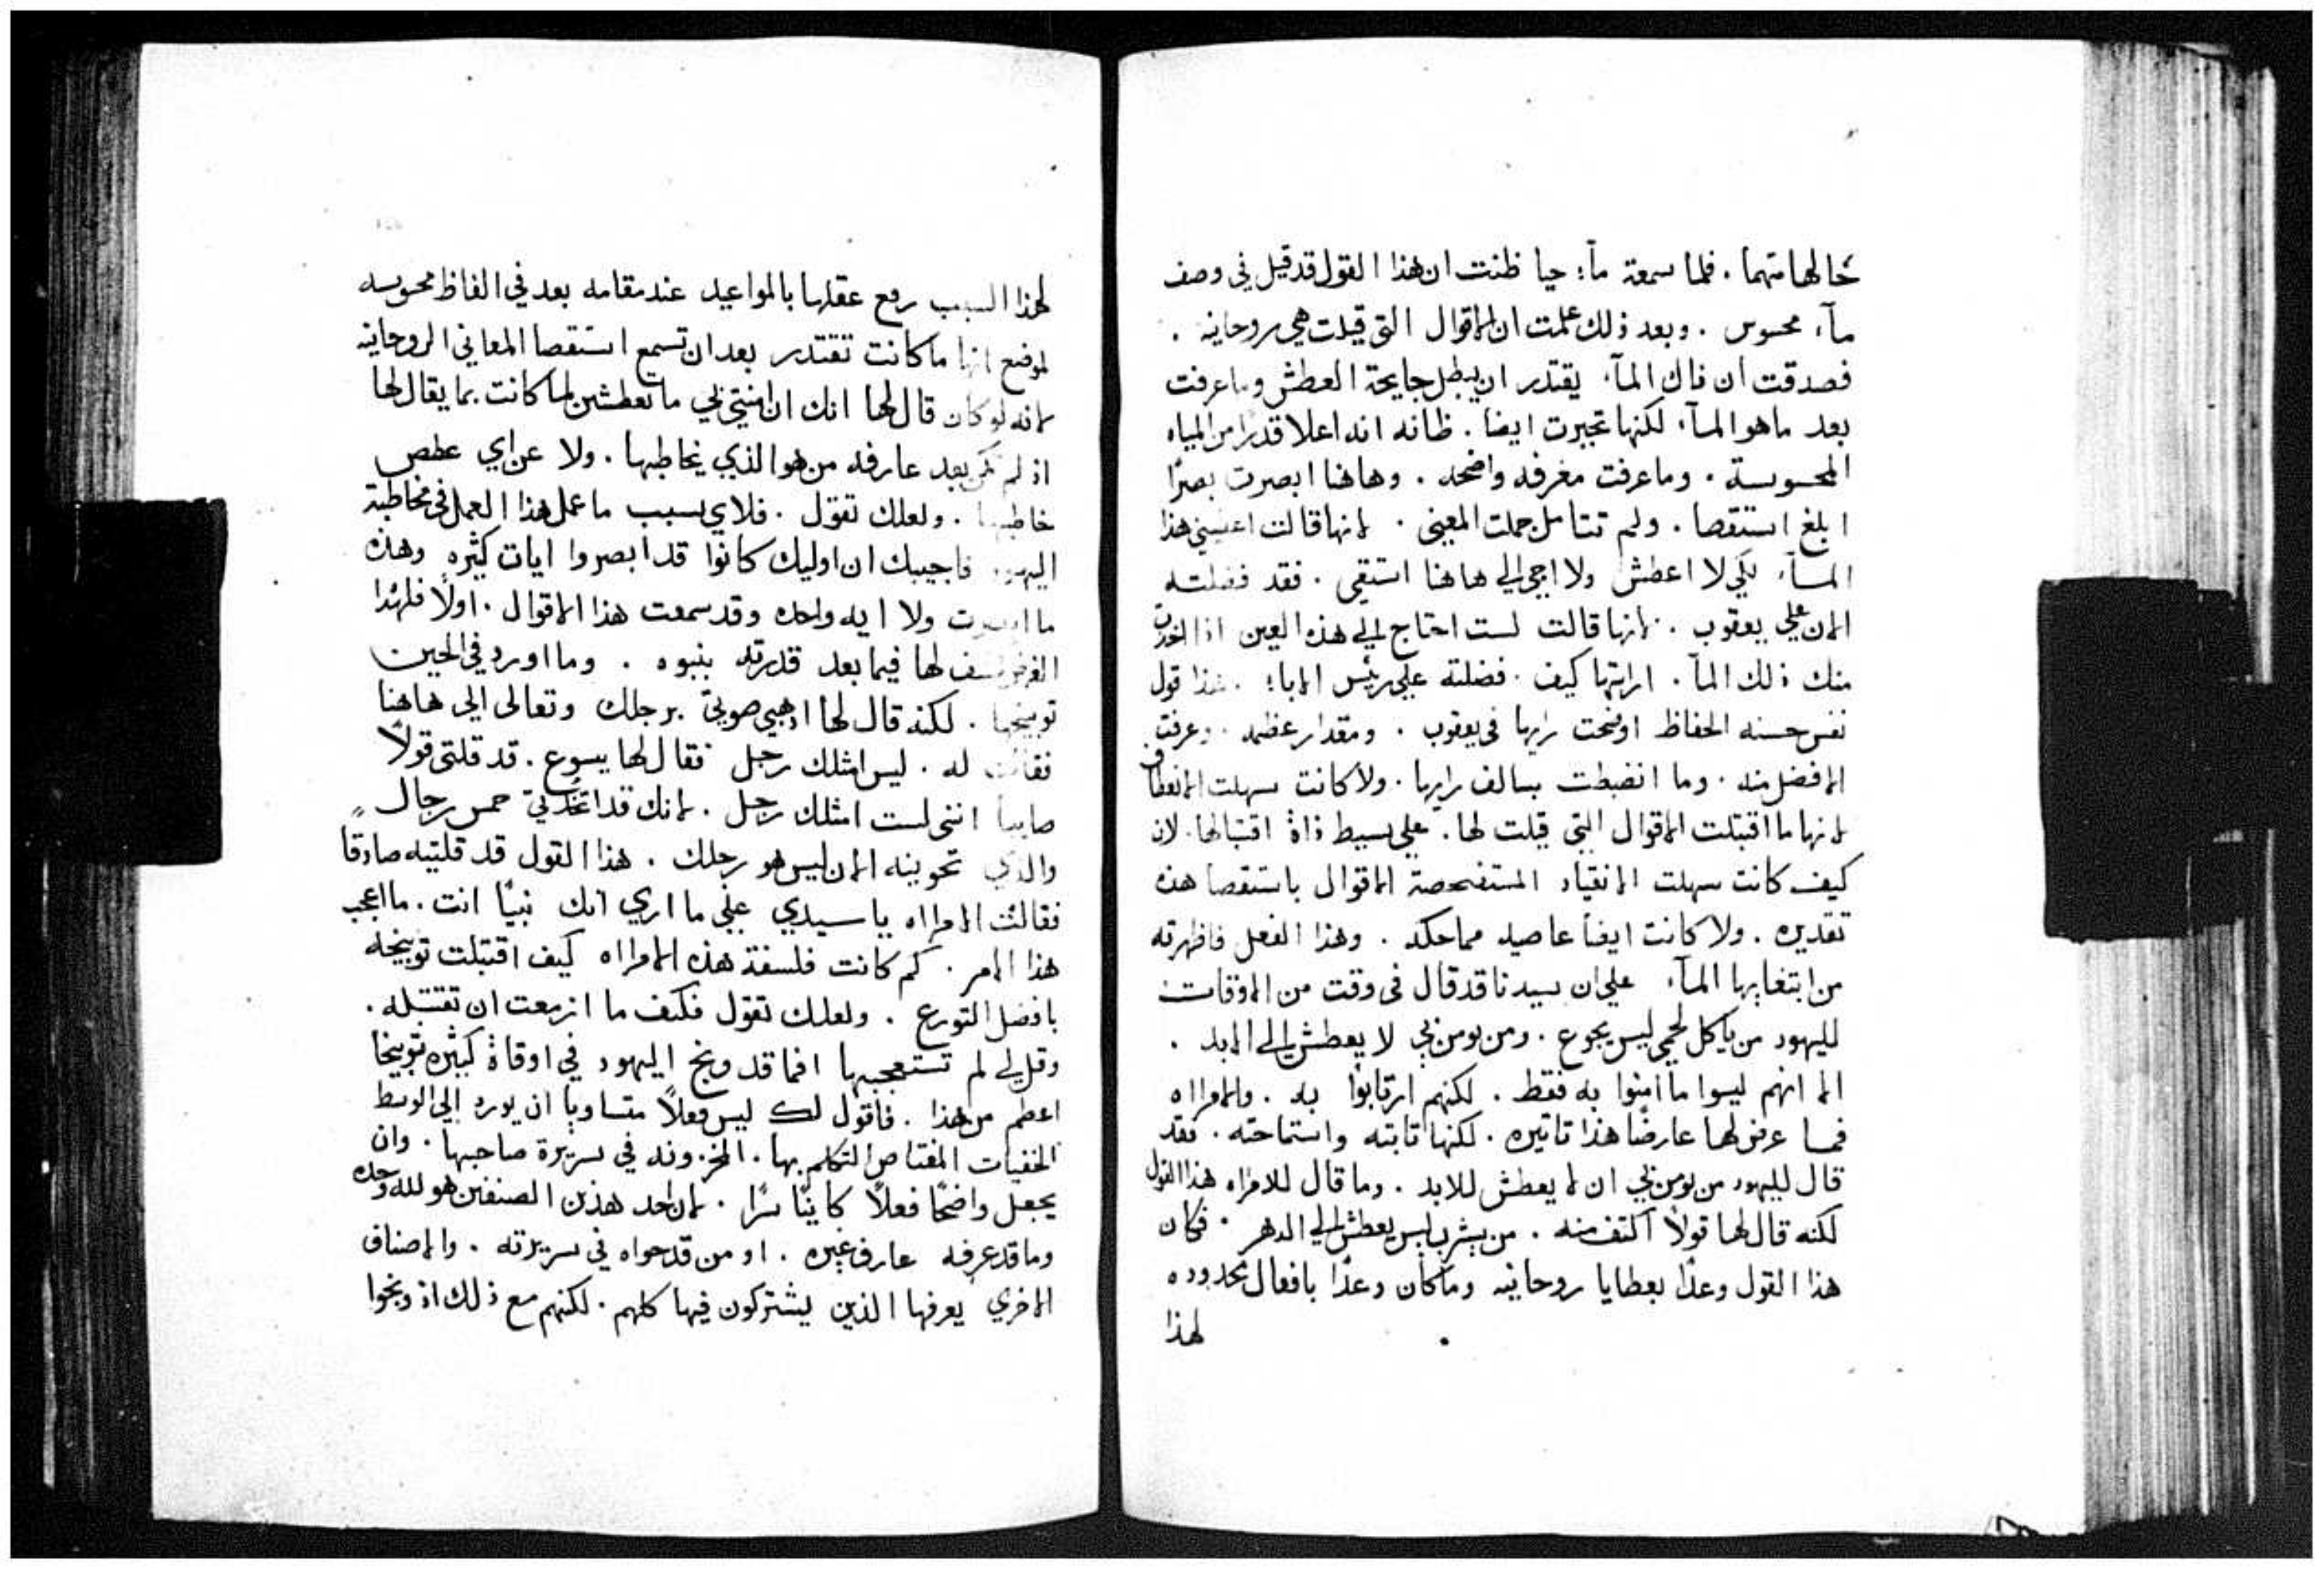 خالها متهما. فلما سمعة مآء حيا ظنت ان هذا القول قد قيل في وصف
مآء محسوس. وبعد ذلك علمت ان الاقوال التي قيلت هي روحانيه.
فصدقت ان ذاك المآء يقتدر ان يبطل جايحة العطش وما عرفت
بعد ما هو المآء لكنها تحيرت ايضا. ظانه انه اعلا قدرا من المياه
المحسوسة. وما عرفت معرفه واضحه. وهاهنا ابصرت بصرًا
ابلغ استقصا. ولم تتامل جملت المعنى. لانها قالت اعطيني هذا
المآء لكي لا اعطش ولا اجي الي هاهنا استقي. فقد فضلته
الان علي يعقوب. لانها قالت لست احتاج الي هذه العين اذا اخذت
منك ذلك المآ. ارايتها كيف. فضلته علي رئيس الاباء. هذا قول
نفس حسنه الحفاظ اوضحت رايها في يعقوب. ومقدار عظمه. وعرفت
الافضل منه. وما انضبطت بسالف رايها. ولا كانت سهلت الانعطاف
لانها ما اقتبلت الاقوال التي قيلت لها. علي بسيط ذاة اقتبالها. لان
كيف كانت سهلت الانقياد المستفحصة الاقوال باستقصا هذه
تقديره. ولا كانت ايضًا عاصيه مماحكه. وهذا الفعل فاظهرته
من ابتغايها المآء علي ان سيدنا قد قال في وقت من الاوقات
لليهود من ياكل لحمي ليس يجوع. ومن يومن بي لا يعطش الي الابد.
الا انهم ليسوا ما امنوا به فقط. لكنهم ارتابوا به. والامراه
فما عرض لها عارضًا هذا تاتيره. لكنها تابته واستماحته. فقد
قال لليهود من يومن بي ان لا يعطش للابد. وما قال للامراه هذا القول
لكنه قال لها قولاً اكتف منه. من يشرب ليس يعطش الي الدهر. فكان
هذا القول وعدًا بعطايا روحانيه وما كان وعدًا بافعال محدوده
لهذا
لهذا السبب رفع عقلها بالمواعيد عند مقامه بعد في الفاظ محسوسه
لموضع انها ما كانت تقتدر بعد ان تسمع استقصا المعاني الروحانيه
لانه لو كان قال لها انك ان امنتي بي ما تعطشين لما كانت بما يقال لها
اذ لم تكن بعد عارفه من هو الذي يخاطبها. ولا عن اي عطص
خاطبها. ولعلك تقول. فلاي سبب ما عمل هذا العمل في مخاطبة
اليهود فاجيبك ان اوليك كانوا قد ابصروا ايات كثيره وهذه
ما ابصرت ولا ايه واحده وقد سمعت هذا الاقوال. اولاً فلهذا
الغرض كشف لها فيما بعد قدرته بنبوه. وما اورد في الحين
توبيخها. لكنه قال لها ادهبي صوتي برجلك وتعالى الي هاهنا
فقالت له. ليس امثلك رجل فقال لها يسوع. قد قلتي قولاً
صايبا انني لست امثلك رجل. لانك قد اتخدتي خمس رجال
والذي تحوينه الان ليس هو رجلك. هذا القول قد قلتيه صادقًا
فقالت الامراه يا سيدي علي ما اري انك نبيًا انت. ما اعجب
هذا الامر. كم كانت فلسفة هذه الامراه كيف اقتبلت توبيخه
بافضل التورع. ولعلك تقول فكيف ما ازمعت ان تقتبله.
وقل لي لم تستعجبها افما قد وبخ اليهود في اوقاة كثيره توبيخا
اعظم من هذا. فاقول لك ليس فعلاً متساويا ان يورد الي الوسط
الخفيات المفتاص التكلم بها. المخزونه في سريرة صاحبها. وان
يجعل واضحًا فعلاً كاينًا سرًا. لان احد هذين الصنفين هو لله وحده
وما قد عرفه عارف غيره. او من قد حواه في سريرته. والاصناف
الاخري يعرفها الذين يشتركون فيها كلهم. لكنهم مع ذلك اذ وبخوا